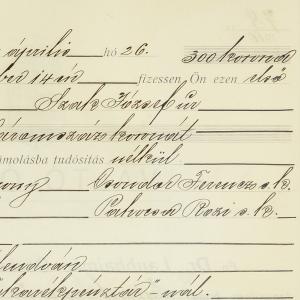 április hó 26. 300 korona
ber 14 én fizessen Ön ezen első
Szak József úr
áromszáz koronát
zámolásba tudósítás nélkül
ony Csondor Ferencz s. k.
Rozi s. k.
lendván
takarékpénztár"-nál.